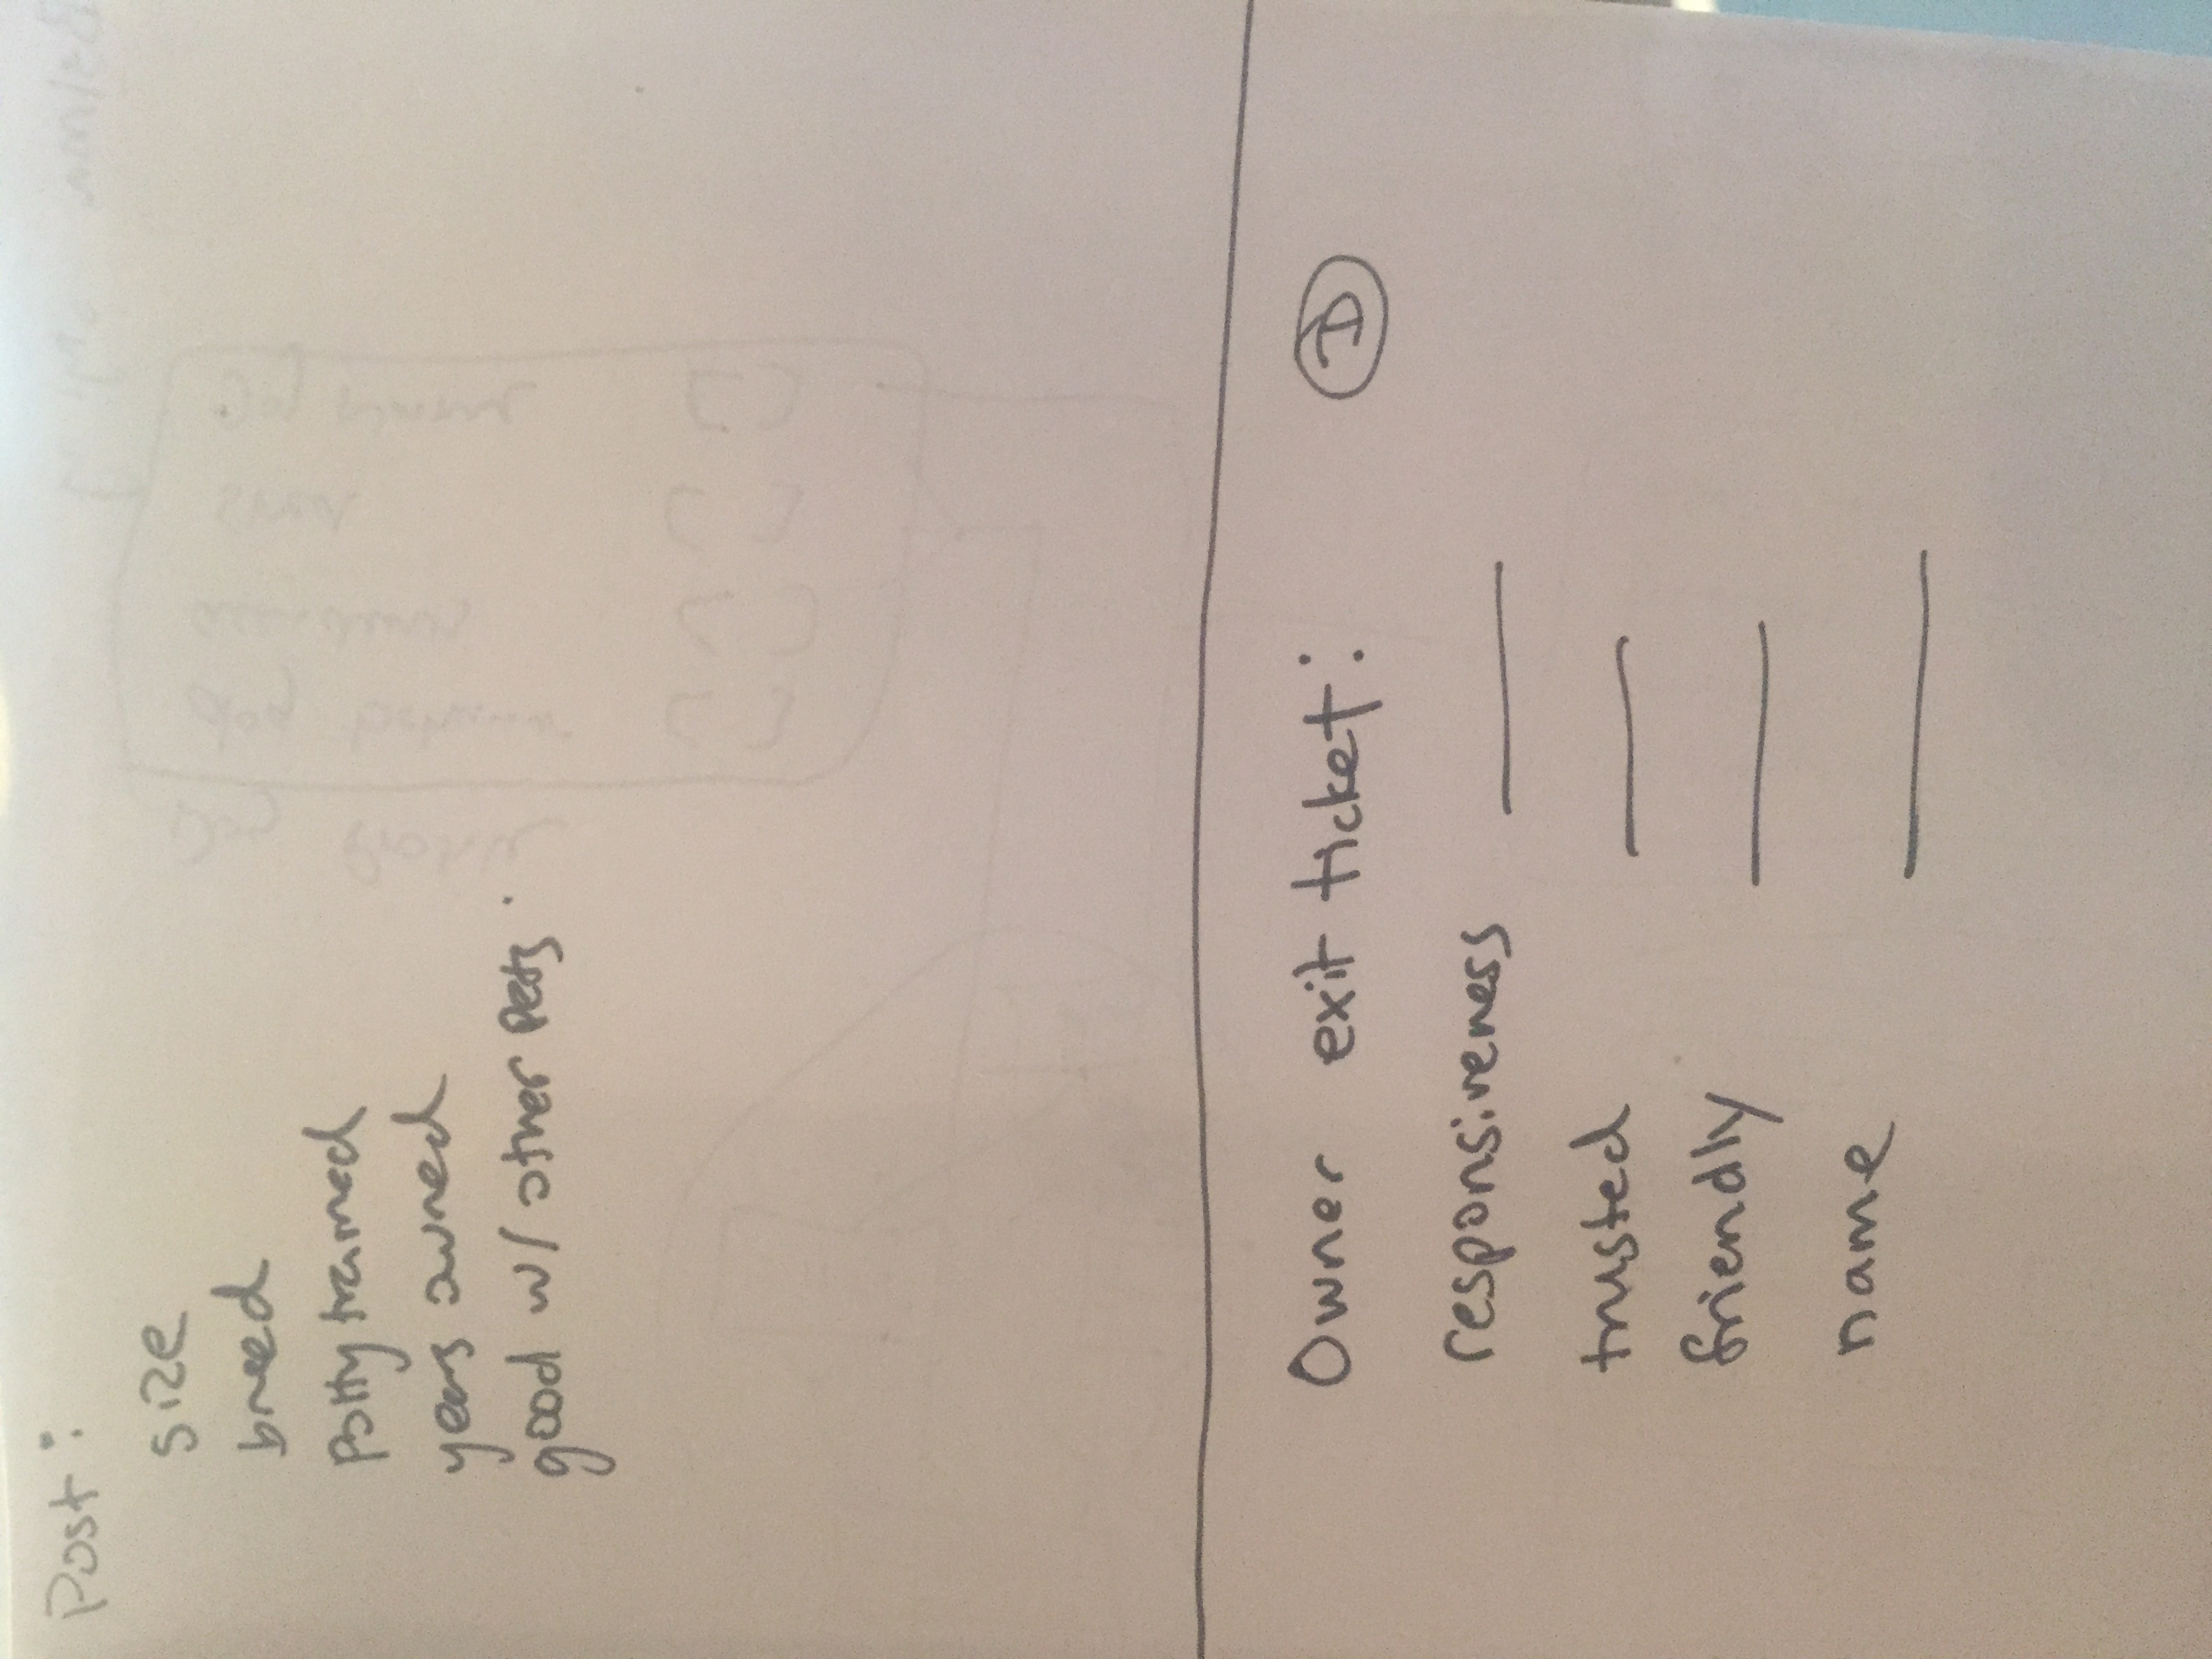 Post:
size
breed
Potty trained
years owned
good w/ other Pets
Owner exit ticket:
D
responsiveness
trusted
friendly
name